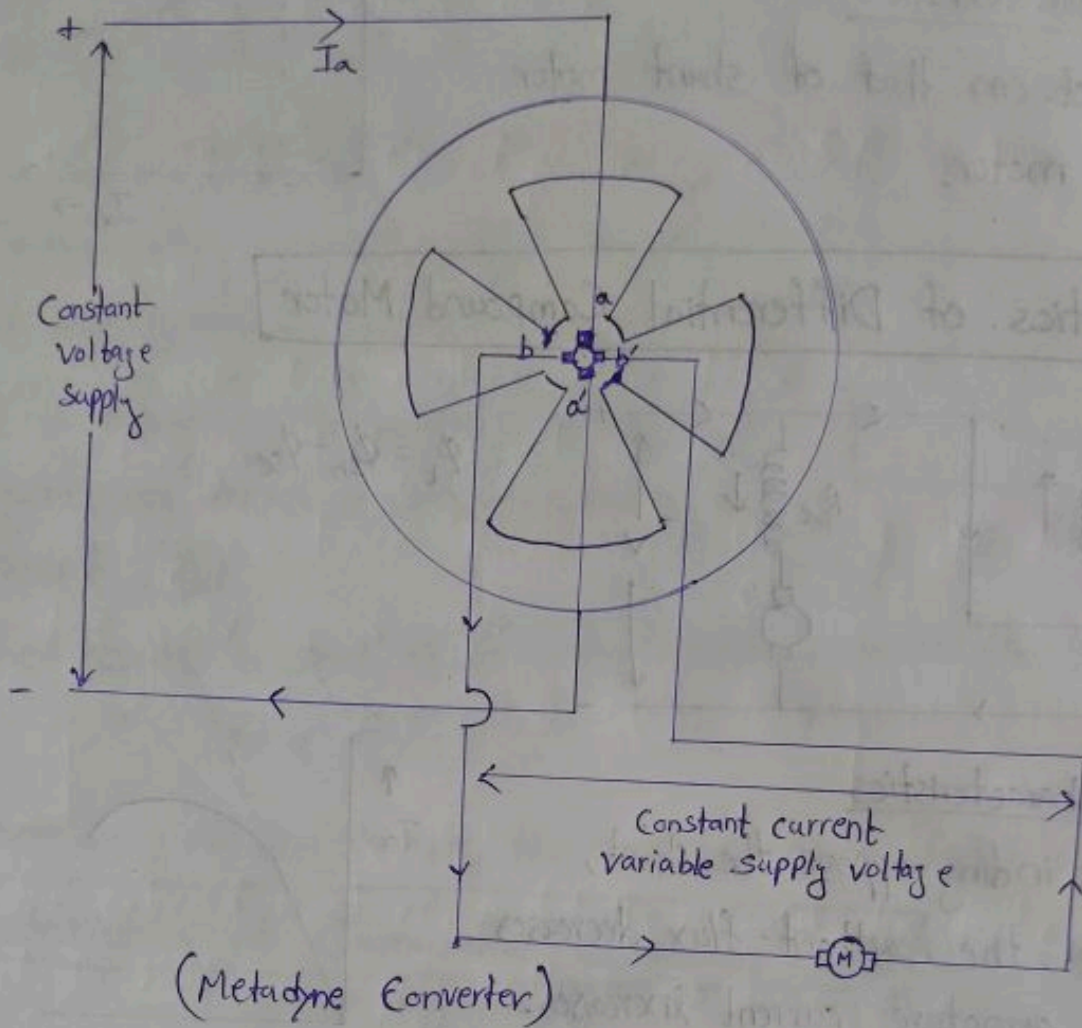 +
Ia
Constant
voltage
supply
a
b
b'
a'
-
Constant current
variable supply voltage
M
(Metadyne Converter)